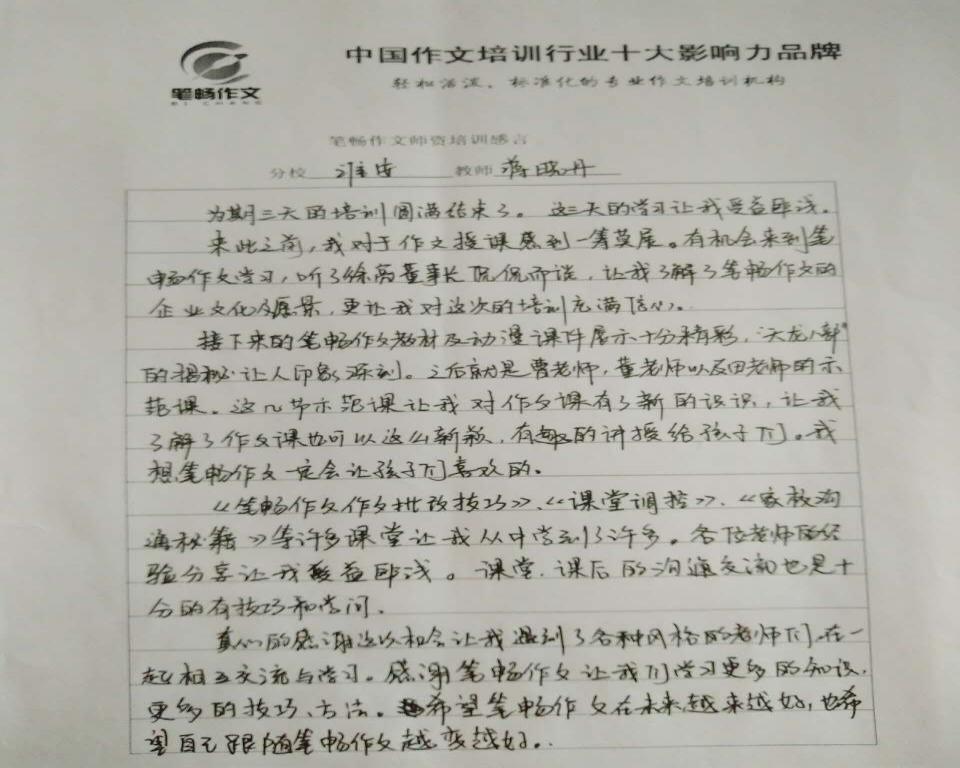 中国作文培训行业十大影响力品牌
轻松活泼、标准化的专业作文培训机构
笔畅作文
BI CHANG
笔畅作文师资培训感言
分校 淮安 教师 蒋晓丹
为期三天的培训圆满结束了。这三天的学习让我受益匪浅。
来此之前，我对于作文授课感到一筹莫展。有机会来到笔
畅作文学习，听了徐芮董事长侃侃而谈，让我了解了笔畅作文的
企业文化及愿景，更让我对这次的培训充满信心。
接下来的笔畅作文教材及动漫课件展示十分精彩，“天龙八部”
的揭秘让人印象深刻。之后就是曹老师，董老师以及田老师的示
范课。这几节示范课让我对作文课有了新的认识，让我
了解了作文课也可以这么新颖，有趣的讲授给孩子们。我
想笔畅作文一定会让孩子们喜欢的。
《笔畅作文作文批改技巧》、《课堂调控》、《家校沟
通秘籍》等许多课堂让我从中学到了许多。各位老师的经
验分享让我受益匪浅。课堂、课后的沟通交流也是十
分的有技巧和学问。
真心的感谢这次机会让我遇到了各种风格的老师们，在一
起相互交流与学习。感谢笔畅作文让我们学习更多的知识，
更多的技巧、方法。希望笔畅作文在未来越来越好，也希
望自己跟随笔畅作文越变越好。